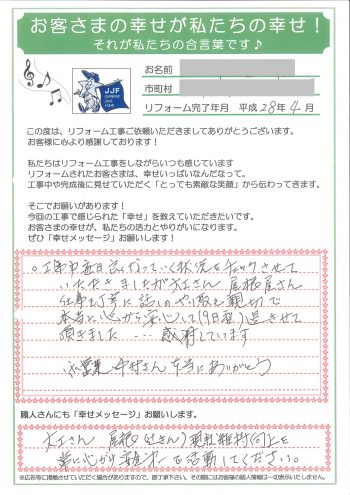 お客さまの幸せが私たちの幸せ！
それが私たちの合言葉です♪
JJF
お名前
市町村
リフォーム完了年月 平成28年4月
この度は、リフォーム工事ご依頼いただきましてありがとうございます。
お客様に心より感謝しております！
私たちはリフォーム工事をしながらいつも感じています
リフォームされたお客さまは、幸せいっぱいなんだなって。
工事中や完成後に見せていただく「とっても素敵な笑顔」から伝わってきます。
そこでお願いがあります！
今回の工事で感じられた「幸せ」を教えていただきたいです。
お客さまの幸せが、私たちの活力とやりがいになります。
ぜひ「幸せメッセージ」お願いします！
いく状況をチェックさせて
いただきましたが大工さん 屋根屋さん
仕事も丁寧に話しのやり取も親切で
本当に心から安心して19日間過させて
頂きました…感謝しています
営業 中村さん本当にありがとう
職人さんにも「幸せメッセージ」お願いします。
大工さん 屋根
常に心がけ で活動してください。
※広告等に掲載させていただく場合がありますので、御了承下さい。その際にはお客様の個人情報は一切表示いたしません。